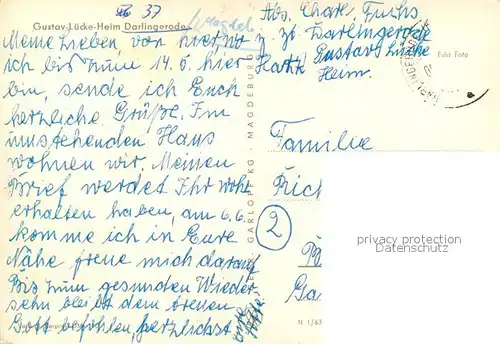 37
Gustav-Lücke-Heim Darlingerode
Meine Lieben, von hier, wo
ich bis zum 14.6. hier
bin, sende ich Euch
herzliche Grüße. Im
umstehenden Haus
wohnen wir. Meinen
Brief werdet Ihr wohl
erhalten haben, am 6.6.
komme ich in Eure
Nähe freue mich darauf
Bis zum gesunden Wieder-
sehn bleibt dem treuen
Gott befohlen herzlichst
Abs. Charl. Fuchs
z. Zt. Darlingerode
Harz Gustav Lücke
Heim.
Echt Foto
GARLOFF KG · MAGDEBURG
Familie
Rich
2
Ga
N 1/63
privacy protection
watermark